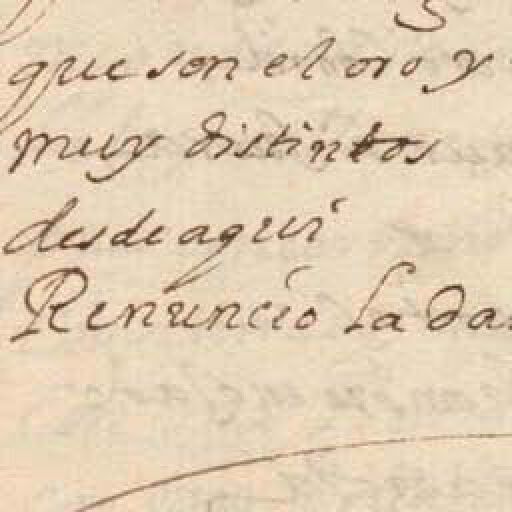 que son el oro y
muy distintos
desde aqui
Renuncio la da